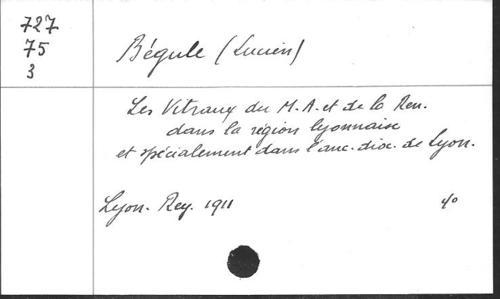 727
75
3
Bégule (Lucien)
Les Vitraux du M.A. et de la Ren.
dans la région lyonnaise
et spécialement dans l'anc. dioc. de Lyon.
Lyon. Rey. 1911
4/0